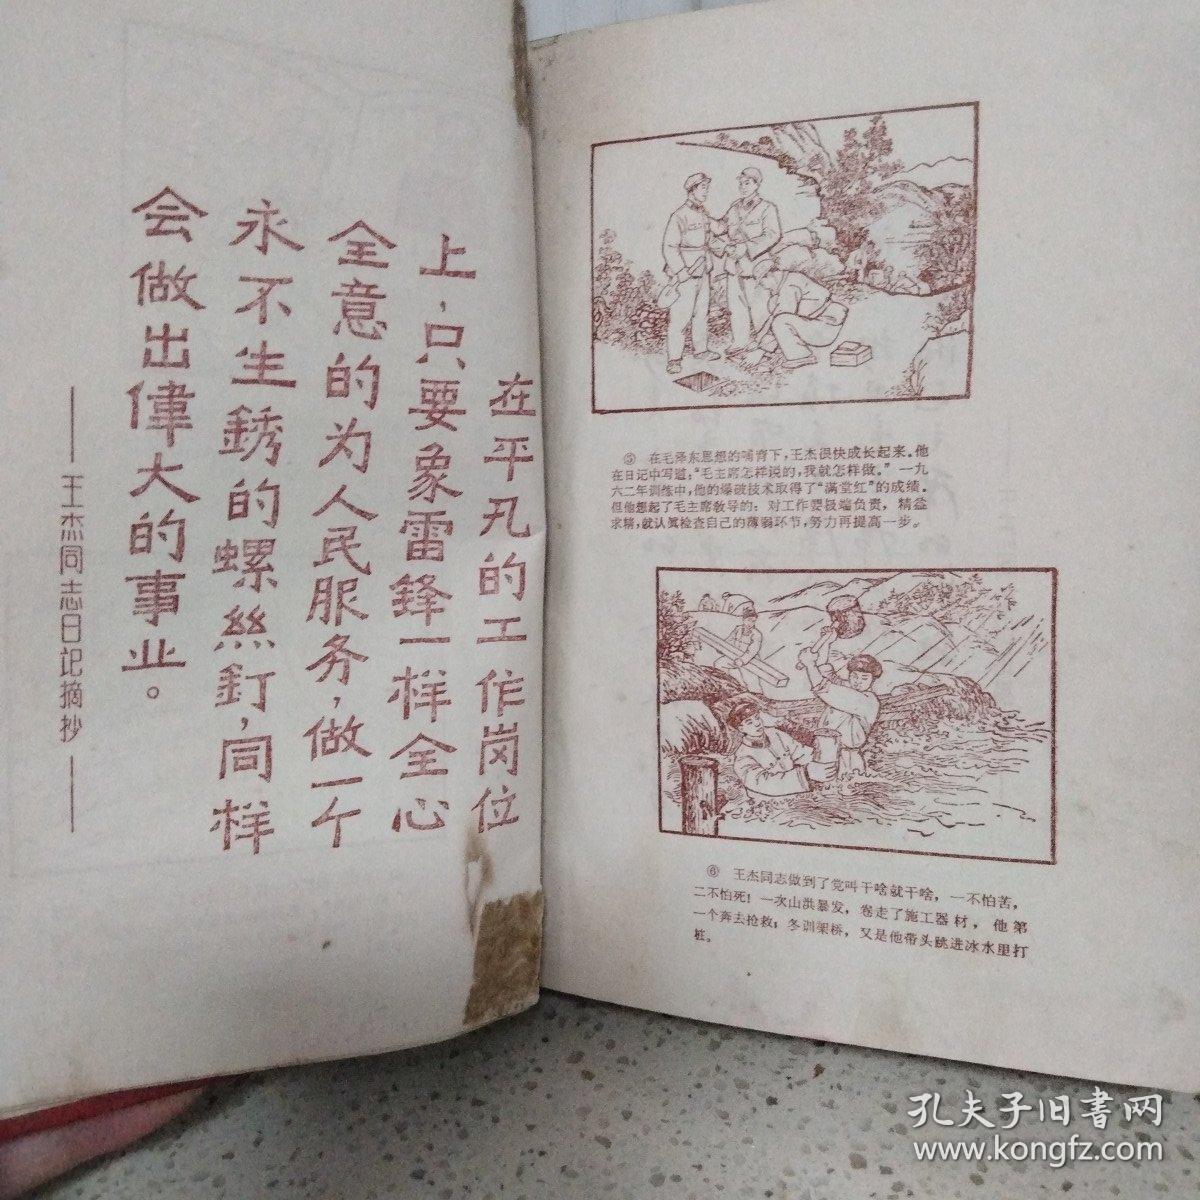 在平凡的工作岗位
上，只要象雷锋一样全心
全意的为人民服务，做一个
永不生銹的螺絲釘，同样
会做出偉大的事业。
——王杰同志日记摘抄——
⑤ 在毛泽东思想的哺育下，王杰很快成长起来。他
在日记中写道：“毛主席怎样说的，我就怎样做。”一九
六二年训练中，他的爆破技术取得了“满堂红”的成绩。
但他想起了毛主席教导的：对工作要极端负责，精益
求精，就认真检查自己的薄弱环节，努力再提高一步。
⑥ 王杰同志做到了党叫干啥就干啥，一不怕苦，
二不怕死！一次山洪暴发，卷走了施工器材，他第
一个奔去抢救；冬训架桥，又是他带头跳进冰水里打
桩。
孔夫子旧书网
www.kongfz.com